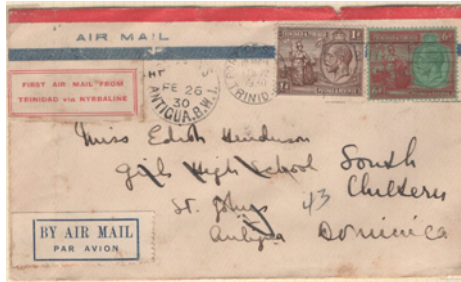 AIR MAIL
FIRST AIR MAIL FROM
TRINIDAD via NYRBALINE
FE 26
30
ANTIGUA.B.W.I.
TRINID
1d
6d
Miss Edith Henderson
Girls High School
St. Johns
Antigua
43
South
Chiltern
Dominica
BY AIR MAIL
PAR AVION